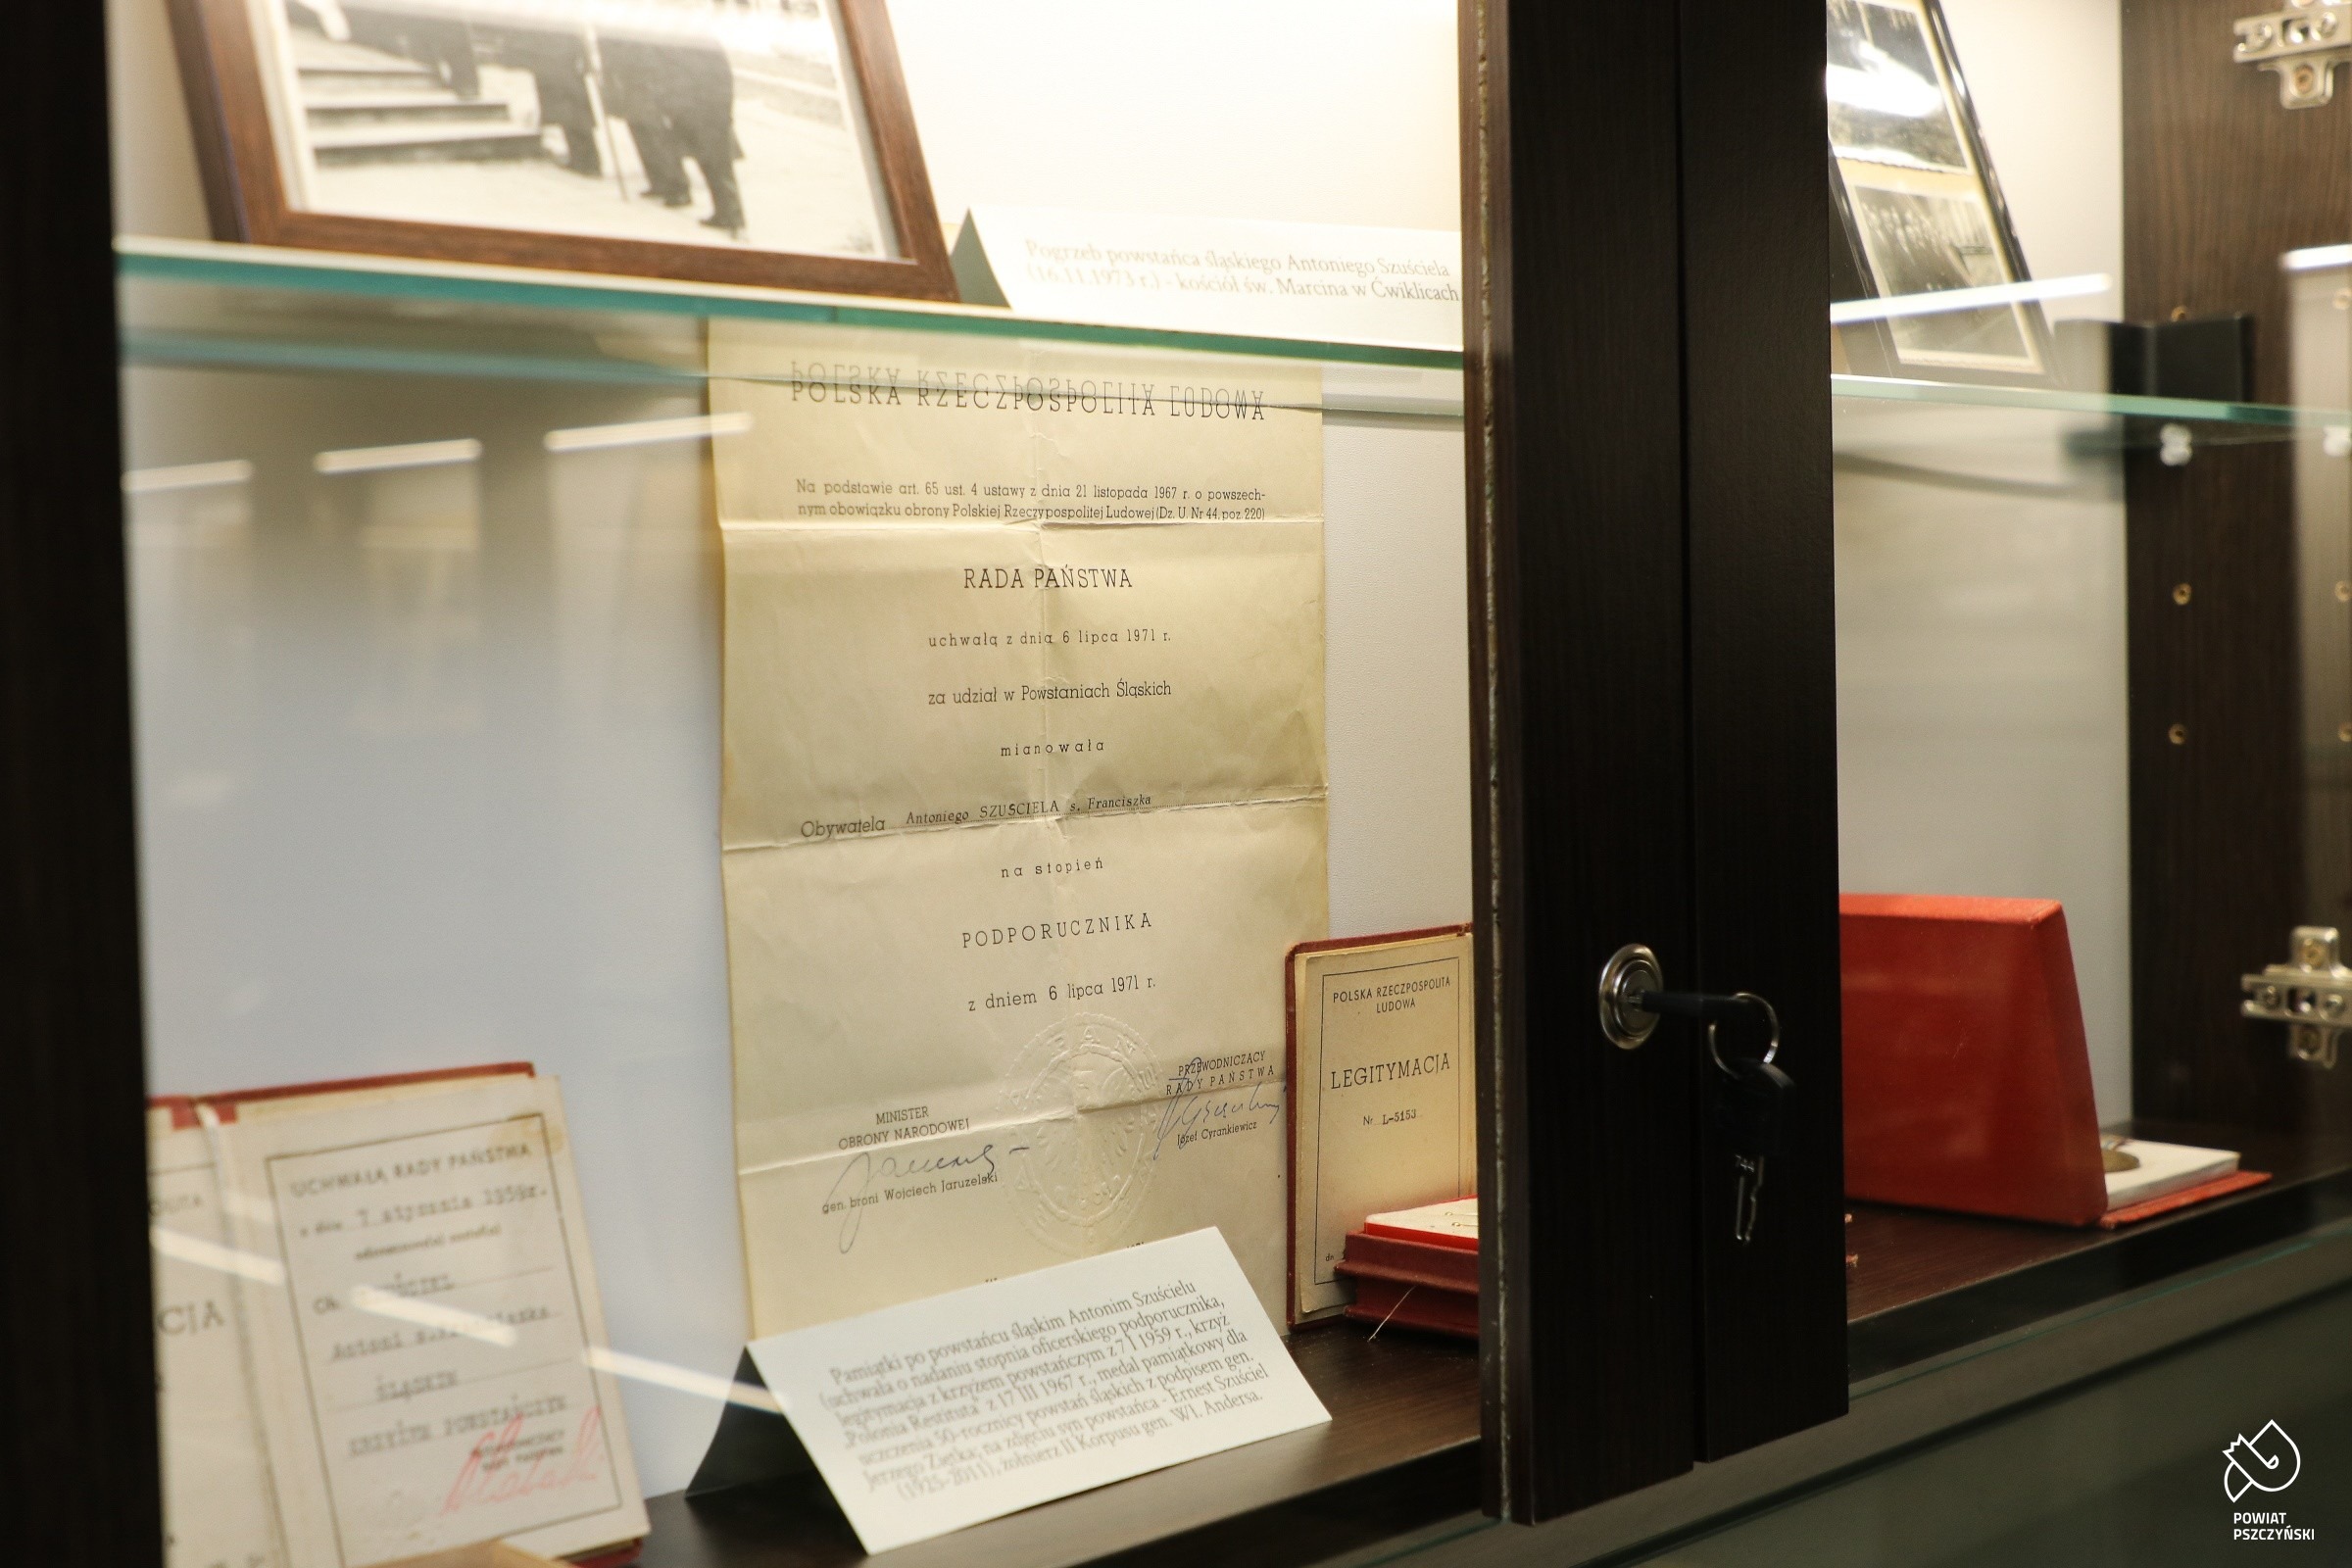 Pogrzeb powstańca śląskiego Antoniego Szuściela
(16.11.1973 r.) - kościół św. Marcina w Ćwiklicach
POLSKA RZECZPOSPOLITA LUDOWA
Na podstawie art. 65 ust. 4 ustawy z dnia 21 listopada 1967 r. o powszech-
nym obowiązku obrony Polskiej Rzeczypospolitej Ludowej (Dz. U. Nr 44, poz. 220)
RADA PAŃSTWA
uchwałą z dnia 6 lipca 1971 r.
za udział w Powstaniach Śląskich
mianowała
Obywatela Antoniego SZUŚCIELA s. Franciszka
na stopień
PODPORUCZNIKA
z dniem 6 lipca 1971 r.
MINISTER
OBRONY NARODOWEJ
gen. broni Wojciech Jaruzelski
PRZEWODNICZĄCY
RADY PAŃSTWA
Józef Cyrankiewicz
POLSKA RZECZPOSPOLITA
LUDOWA
LEGITYMACJA
Nr L-5153
dn.
CJA
UCHWAŁĄ RADY PAŃSTWA
z dnia 7 stycznia 1959r.
Ob.
Antoni
ŚLĄSKIM
KRZYŻEM POWSTAŃCZYM
Pamiątki po powstańcu śląskim Antonim Szuścielu
(uchwała o nadaniu stopnia oficerskiego podporucznika,
legitymacja z krzyżem powstańczym z 7 I 1959 r., krzyż
"Polonia Restituta" z 17 III 1967 r., medal pamiątkowy dla
uczczenia 50-rocznicy powstań śląskich z podpisem gen.
Jerzego Ziętka; na zdjęciu syn powstańca - Ernest Szuściel
(1925-2011), żołnierz II Korpusu gen. Wł. Andersa.
744
POWIAT
PSZCZYŃSKI